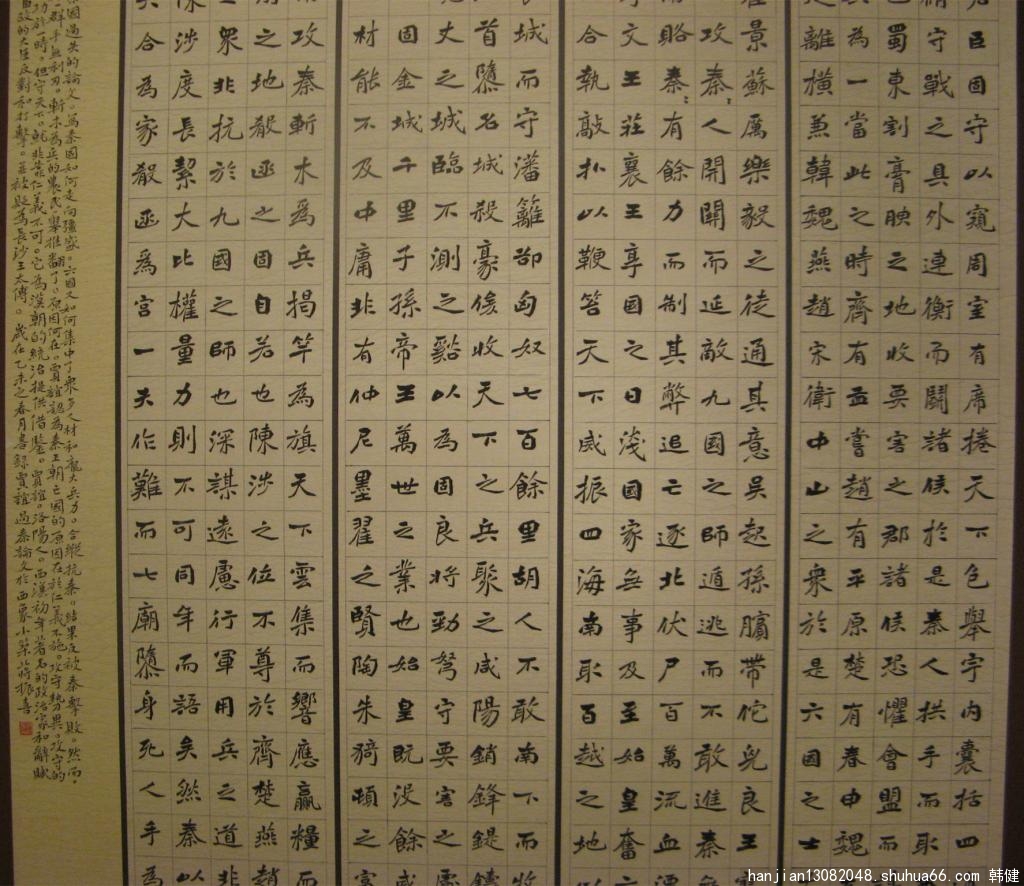 臣固守以窺周室有席捲天下包舉宇内囊括四
守戰之具外連衡而鬭諸侯於是秦人拱手而取
蜀東割膏腴之地收要害之郡諸侯恐懼會盟而
為一當此之時齊有孟嘗趙有平原楚有春申魏
離橫兼韓魏燕趙宋衛中山之衆於是六國之士
景蘇厲樂毅之徒通其意吳起孫臏帶佗兒良王
攻秦人開關而延敵九國之師遁逃而不敢進秦
賂秦有餘力而制其弊追亡逐北伏尸百萬流血
文王莊襄王享國之日淺國家無事及至始皇奮六
合執敲扑以鞭笞天下威振四海南取百越之地以
城而守藩籬卻匈奴七百餘里胡人不敢南下而收
首隳名城殺豪俊收天下之兵聚之咸陽銷鋒鍉鑄
丈之城臨不測之谿以為固良將勁弩守要害之
固金城千里子孫帝王萬世之業也始皇既没餘威
材能不及中庸非有仲尼墨翟之賢陶朱猗頓之富
攻秦斬木為兵揭竿為旗天下雲集而響應贏糧而
之地殽函之固自若也陳涉之位不尊於齊楚燕趙
衆非抗於九國之師也深謀遠慮行軍用兵之道非
涉度長絜大比權量力則不可同年而語矣然秦以
合為家殽函為宫一夫作難而七廟隳身死人手為
秦國過失的論文。為秦國如何走向強盛。六國又如何集中了衆多人材和龐大兵力。合縱抗秦。結果反被秦擊敗。然而。
一群手無利刃。斬木為兵的農民。舉推翻了。原因何在。賈誼認為秦王朝亡國的原因在於仁義不施。攻守勢異。攻守的
功於一時。但守天下。就非靠仁義不可。它為漢朝的統治提供借鑒。賈誼。洛陽人。西漢初年著名的政治家和辭賦
當政的大臣反對和打擊。並被貶為長沙王太傅。歲在乙未之春月書錄賈誼過秦論文於西小築蔣振喜
hanjian13082048.shuhua66.com 韩健